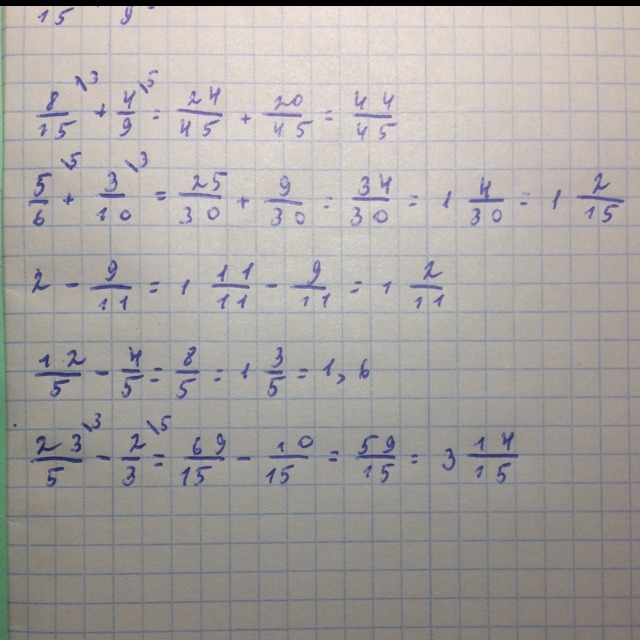 15 9
8/15 \3 + 4/9 \5 = 24/45 + 20/45 = 44/45
5/6 \5 + 3/10 \3 = 25/30 + 9/30 = 34/30 = 1 4/30 = 1 2/15
2 - 9/11 = 1 11/11 - 9/11 = 1 2/11
12/5 - 4/5 = 8/5 = 1 3/5 = 1,6
23/5 \3 - 2/3 \5 = 69/15 - 10/15 = 59/15 = 3 14/15